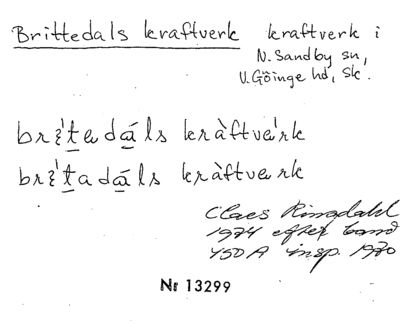 Brittedals kraftverk kraftverk i
N. Sandby sn,
V. Göinge hd, Sk.
brɛ̀'tedáls kràftvæ̀rk
brɛ̀'tadáls kràftværk
Claes Ringdahl
1974 efter band
450 A insp. 1970
Nr 13299